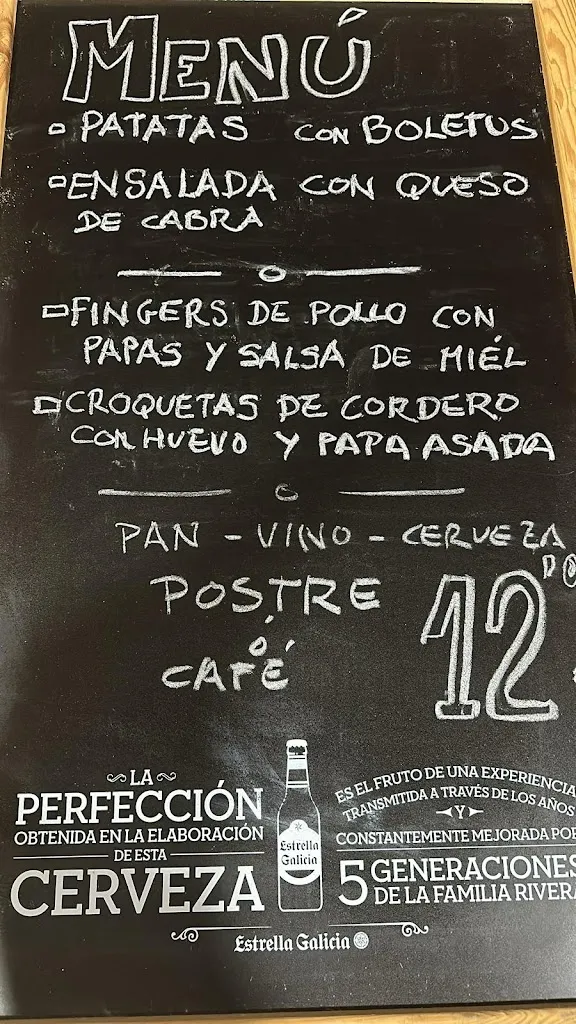 MENÚ
PATATAS CON BOLETUS
ENSALADA CON QUESO
DE CABRA
FINGERS DE POLLO CON
PAPAS Y SALSA DE MIÉL
CROQUETAS DE CORDERO
CON HUEVO Y PAPA ASADA
PAN - VINO - CERVEZA
POSTRE
Ó
CAFÉ
12
LA
PERFECCIÓN
OBTENIDA EN LA ELABORACIÓN
DE ESTA
CERVEZA
Estrella
Galicia
ES EL FRUTO DE UNA EXPERIENCIA
TRANSMITIDA A TRAVÉS DE LOS AÑOS
Y
CONSTANTEMENTE MEJORADA POR
5 GENERACIONES
DE LA FAMILIA RIVERA
Estrella Galicia